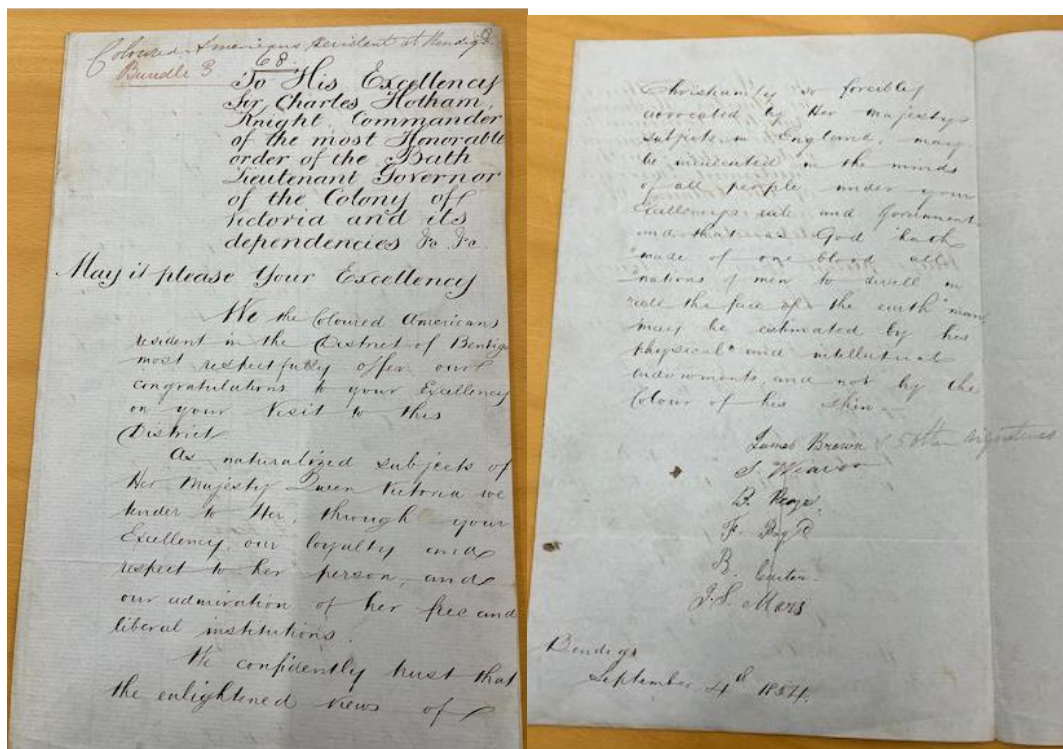 Coloured Americans Resident at Bendigo
Bundle 3
68.
To His Excellency
Sir Charles Hotham,
Knight Commander
of the most Honorable
order of the Bath
Lieutenant Governor
of the Colony of
Victoria and its
dependencies &c. &c.
May it please Your Excellency
We the Coloured Americans
resident in the District of Bendigo
most respectfully offer our
congratulations to your Excellency
on your Visit to this
District
As naturalized subjects of
Her Majesty Queen Victoria we
tender to Her, through your
Excellency, our loyalty and
respect to her person, and
our admiration of her free and
liberal institutions.
We confidently trust that
the enlightened views of
Christianity so forcibly
advocated by Her majestys
subjects in England, may
be inculcated in the minds
of all people under your
Excellencys rule and Government
and that as God hath
"made of one blood all
"nations of men to dwell on
the face of the earth" man
may be estimated by his
physical and intellectual
endowments, and not by the
Colour of his skin.
James Brown & 5 other signatures
S. Weaver
B.
F.
B. Carter.
J. S. Mars
Bendigo
September 4th 1854.